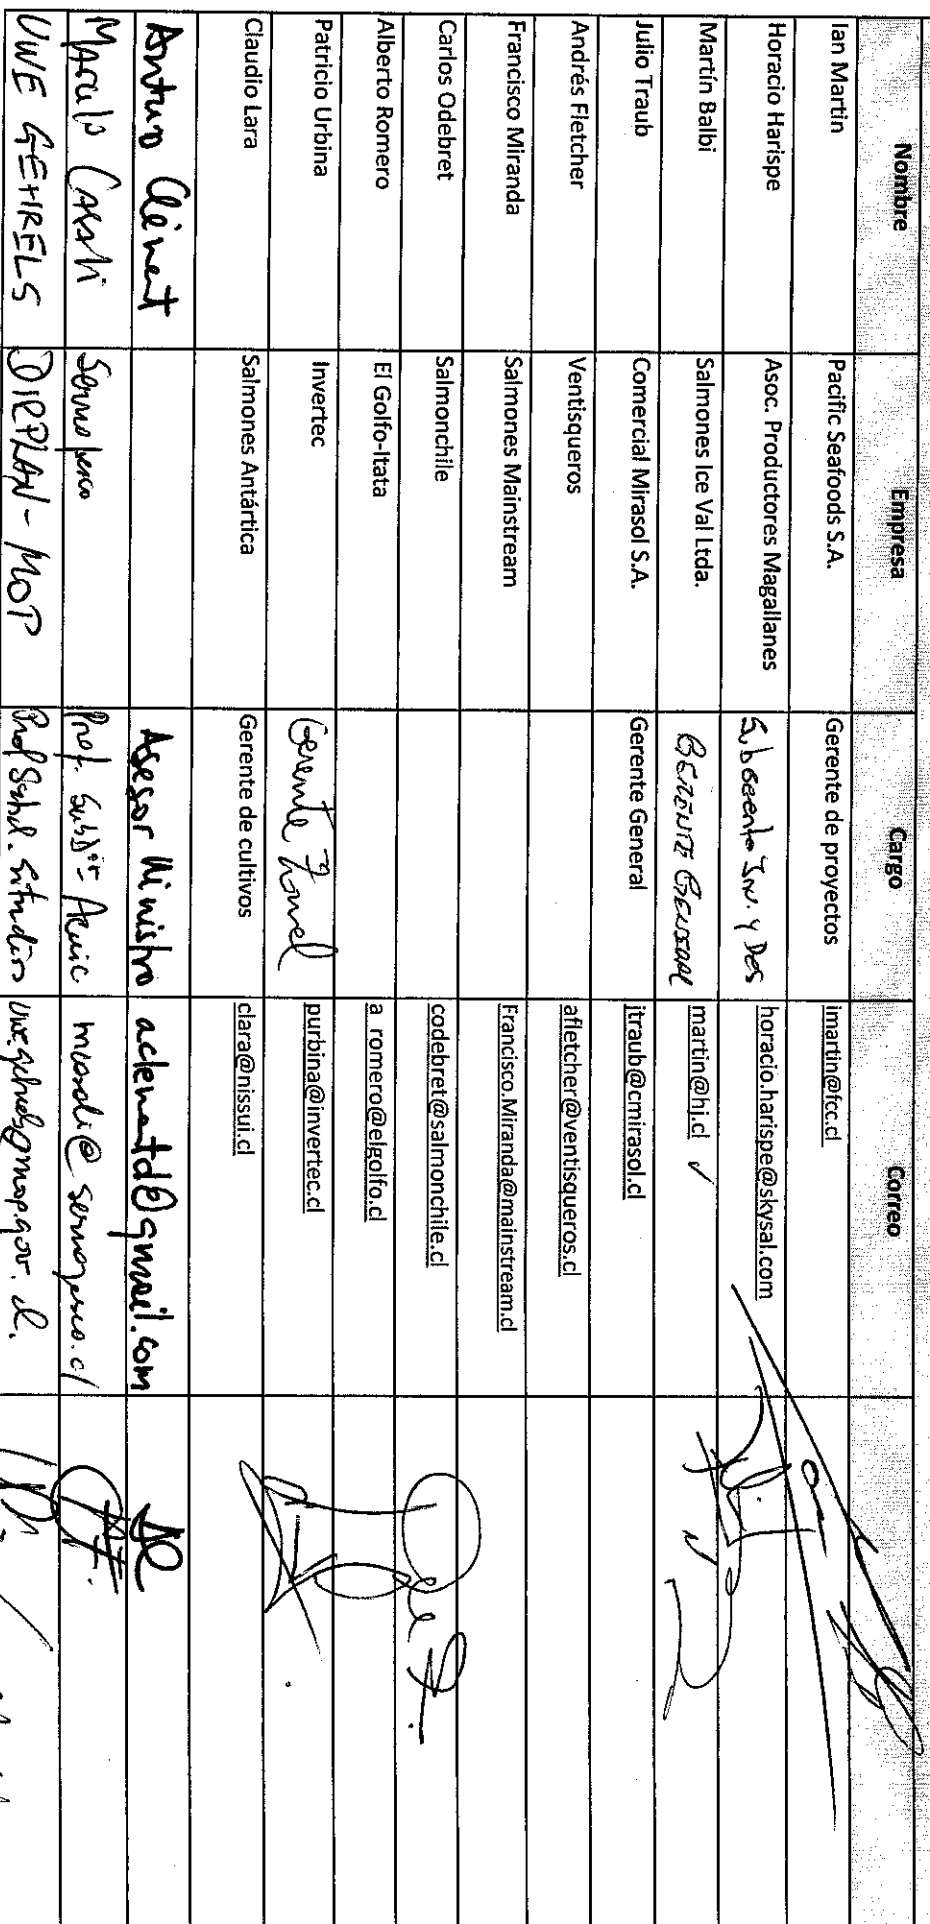 Nombre Empresa Cargo Correo
Ian Martin Pacific Seafoods S.A. Gerente de proyectos imartin@fcc.cl
Horacio Harispe Asoc. Productores Magallanes Subgerente Inv. y Des horacio.harispe@skysal.com
Martín Balbi Salmones Ice Val Ltda. GERENTE GENERAL martin@hj.cl ✓
Julio Traub Comercial Mirasol S.A. Gerente General itraub@cmirasol.cl
Andrés Fletcher Ventisqueros afletcher@ventisqueros.cl
Francisco Miranda Salmones Mainstream Francisco.Miranda@mainstream.cl
Carlos Odebret Salmonchile codebret@salmonchile.cl
Alberto Romero El Golfo-Itata a_romero@elgolfo.cl
Patricio Urbina Invertec Gerente Zonal purbina@invertec.cl
Claudio Lara Salmones Antártica Gerente de cultivos clara@nissui.cl
Arturo Clément Asesor Ministro aclementd@gmail.com
Sernapesca Prof. Acuic @sernapesca.cl
UWE GEHRELS DIRPLAN-MOP uwe.gehrels@mop.gov.cl.